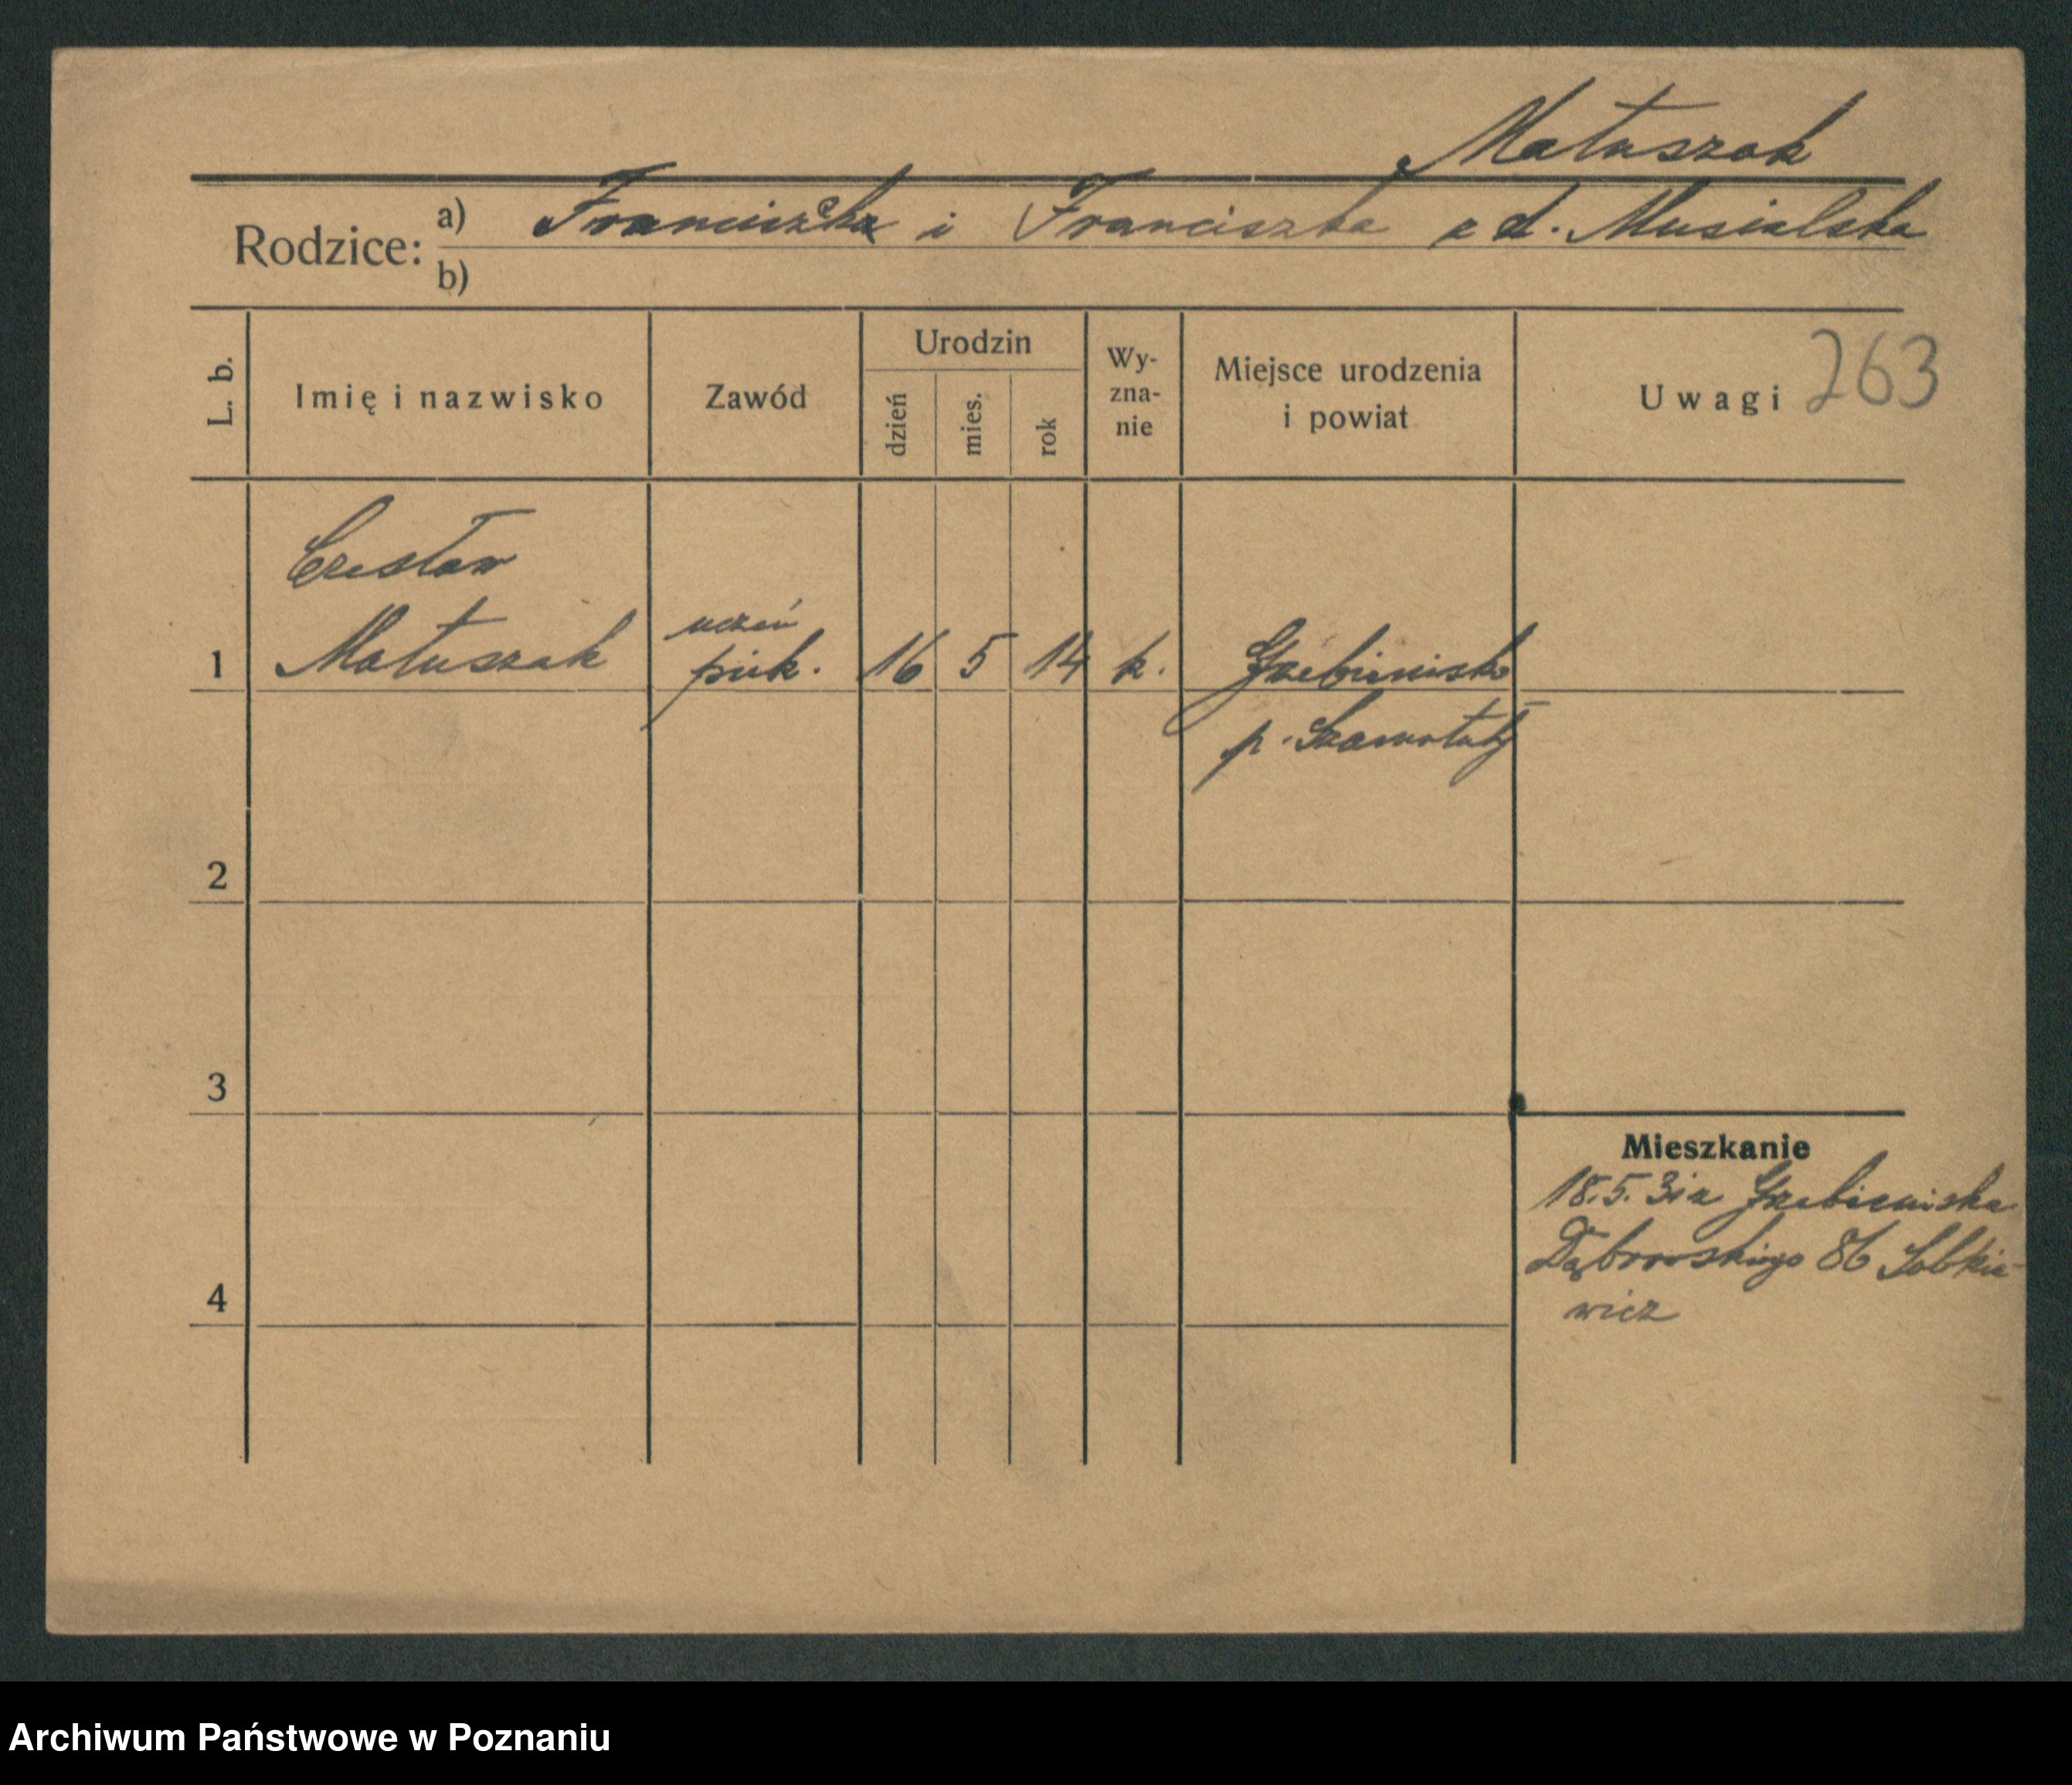 Matuszak
Rodzice: a) Franciszek i Franciszka z d. Musialska
b)
L. b.
Imię i nazwisko
Zawód
Urodzin
dzień
mies.
rok
Wy-
zna-
nie
Miejsce urodzenia
i powiat
Uwagi 263
Czesław
uczeń
1 Matuszak piek. 16 5 14 k. Grzebienisko
p. Szamotuły
2
3
Mieszkanie
18.5.31 z Grzebieniska
Dąbrowskiego 86 Sobkie-
4
wicz
Archiwum Państwowe w Poznaniu